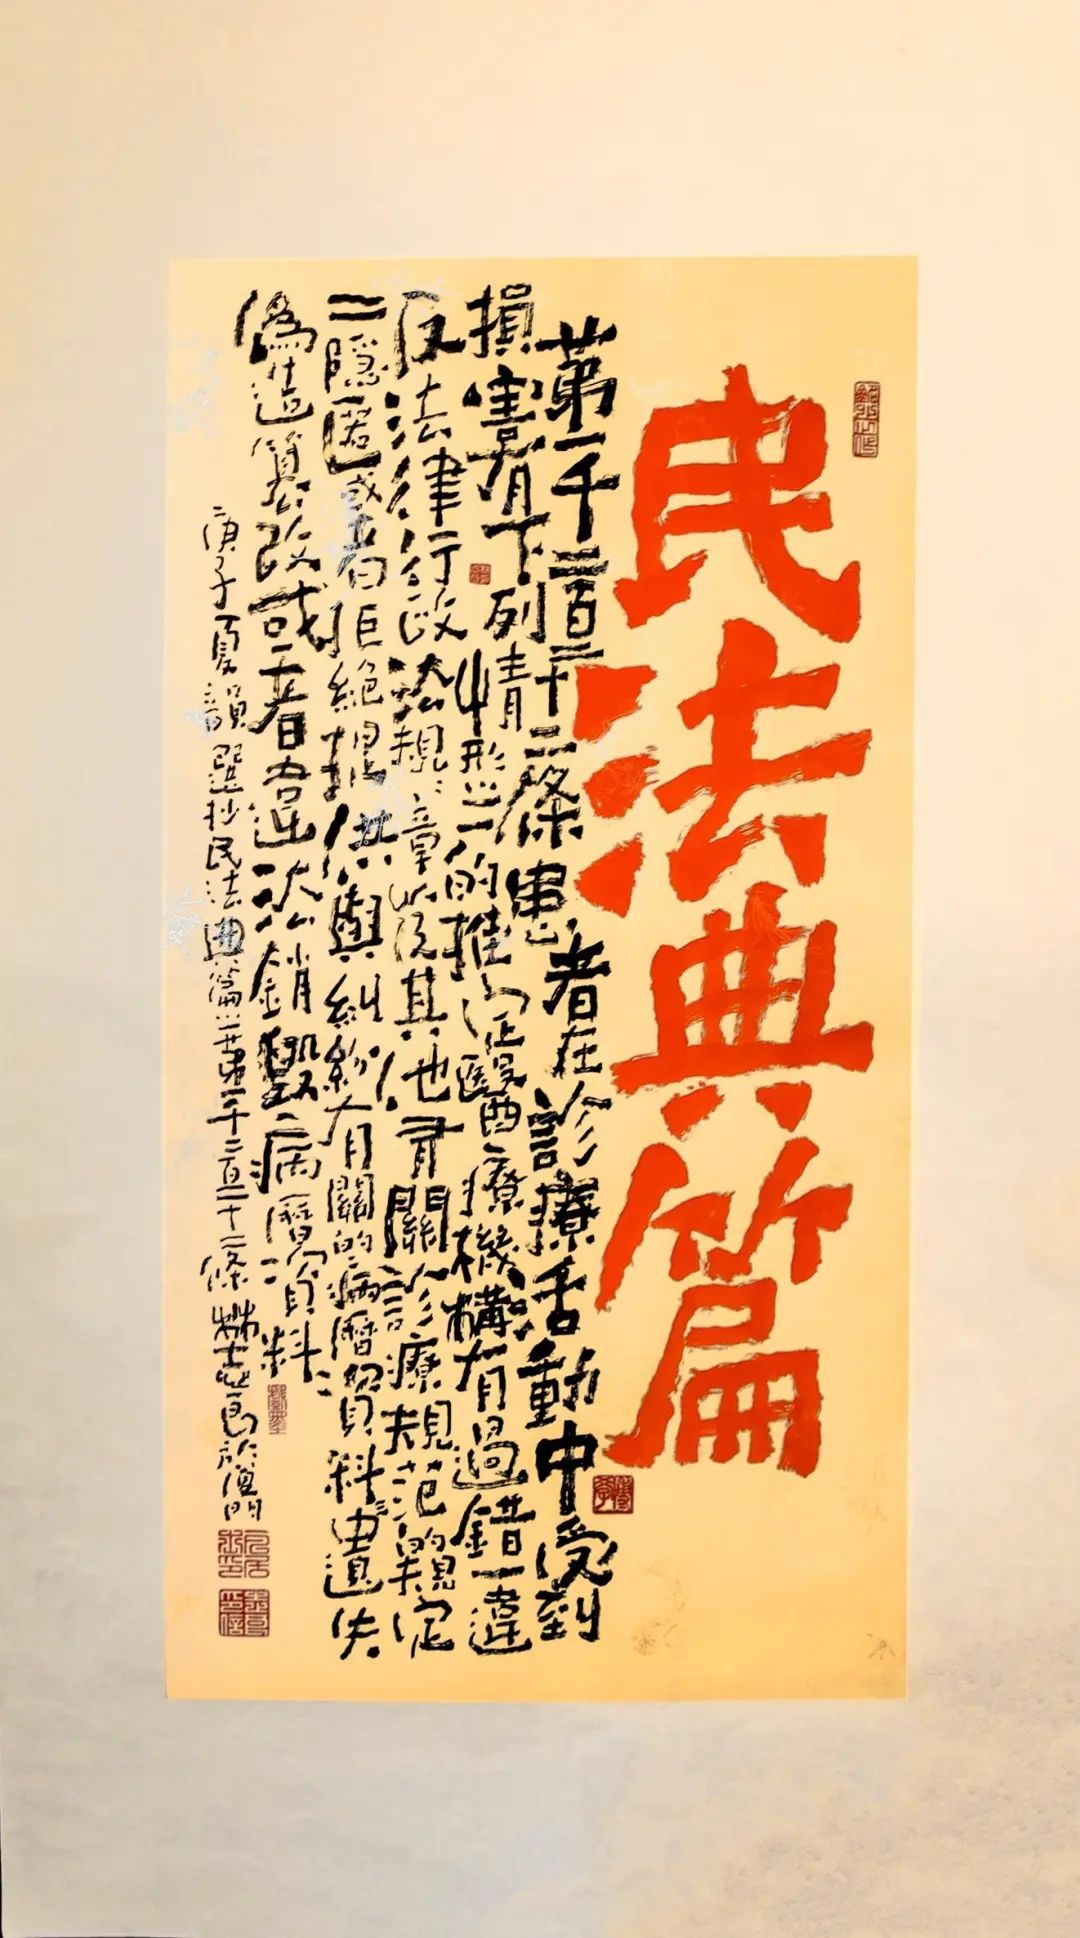 民法典篇
第一千二百二十二條患者在診療活動中受到
損害有下列情形之一的推定醫療機構有過錯一違
反法律行政法規規章以及其他有關診療規范的規定
二隱匿或者拒絕提供與糾紛有關的病曆資料三遺失
偽造篡改或者違法銷毀病曆資料
庚子夏韻選抄民法典篇第一千二百二十二條林志良於澳門